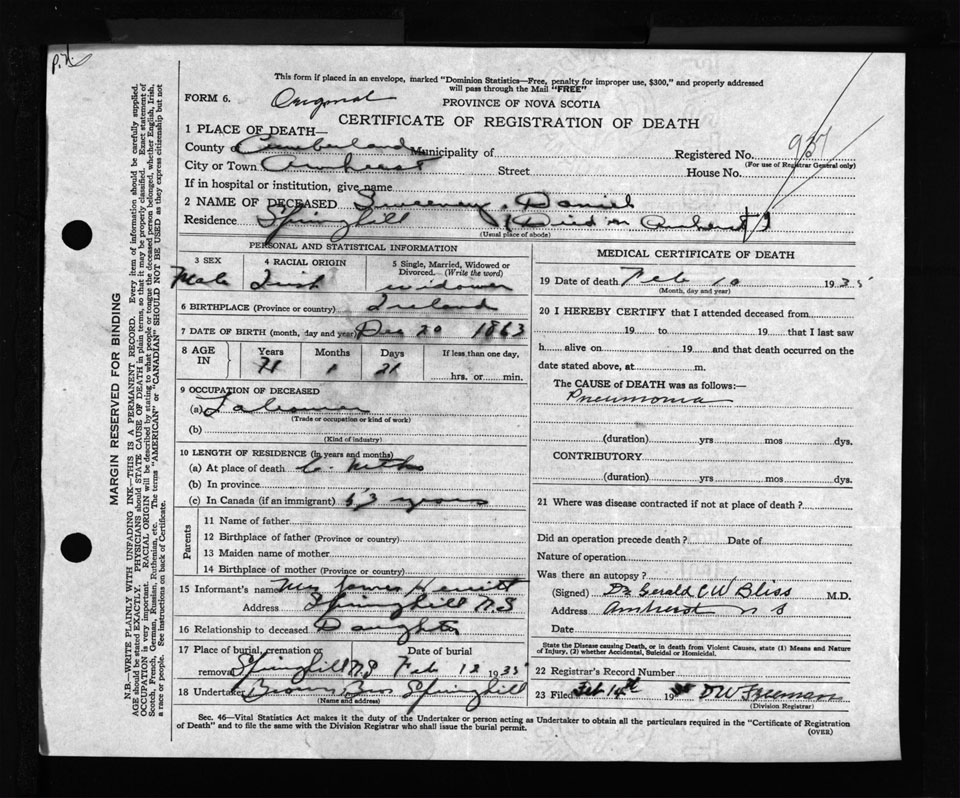 P.X.
This form if placed in an envelope, marked "Dominion Statistics—Free, penalty for improper use, $300," and properly addressed
will pass through the Mail "FREE"
FORM 6. Original PROVINCE OF NOVA SCOTIA
CERTIFICATE OF REGISTRATION OF DEATH
1 PLACE OF DEATH—
County of Cumberland Municipality of Registered No. 937
(For use of Registrar General only)
City or Town Amherst Street House No.
If in hospital or institution, give name
2 NAME OF DECEASED Sweeney, Daniel
Residence Springhill (Died in Amherst)
(Usual place of abode)
PERSONAL AND STATISTICAL INFORMATION
3 SEX 4 RACIAL ORIGIN 5 Single, Married, Widowed or Divorced. (Write the word)
Male Irish widower
6 BIRTHPLACE (Province or country) Ireland
7 DATE OF BIRTH (month, day and year) Dec 20 1863
8 AGE IN Years Months Days If less than one day,
71 1 21 hrs. or min.
9 OCCUPATION OF DECEASED
(a) Labourer
(Trade or occupation or kind of work)
(b)
(Kind of industry)
10 LENGTH OF RESIDENCE (in years and months)
(a) At place of death 6
(b) In province
(c) In Canada (if an immigrant) 53 years
Parents
11 Name of father
12 Birthplace of father (Province or country)
13 Maiden name of mother
14 Birthplace of mother (Province or country)
15 Informant's name Mrs James
Address Springhill N.S
16 Relationship to deceased Daughter
17 Place of burial, cremation or removal Date of burial
Springhill N.S Feb 12 1935
18 Undertaker Brown Bros Springhill
(Name and address)
MEDICAL CERTIFICATE OF DEATH
19 Date of death Feb 10 1935
(Month, day and year)
20 I HEREBY CERTIFY that I attended deceased from
19 to 19 that I last saw
h alive on 19 and that death occurred on the
date stated above, at m.
The CAUSE of DEATH was as follows:—
Pneumonia
(duration) yrs mos dys.
CONTRIBUTORY
(duration) yrs mos dys.
21 Where was disease contracted if not at place of death?
Did an operation precede death? Date of
Nature of operation
Was there an autopsy?
(Signed) Dr Gerald C W Bliss M.D.
Address Amherst N S
Date
State the Disease causing Death, or in death from Violent Causes, state (1) Means and Nature
of Injury, (2) whether Accidental, Suicidal or Homicidal.
22 Registrar's Record Number
23 Filed Feb 14th 19 DW Freeman
(Division Registrar)
Sec. 46—Vital Statistics Act makes it the duty of the Undertaker or person acting as Undertaker to obtain all the particulars required in the "Certificate of Registration
of Death" and to file the same with the Division Registrar who shall issue the burial permit.
(OVER)
MARGIN RESERVED FOR BINDING
N.B.—WRITE PLAINLY WITH UNFADING INK—THIS IS A PERMANENT RECORD. Every item of information should be carefully supplied.
AGE should be stated EXACTLY. PHYSICIANS should STATE CAUSE OF DEATH in plain terms, so that it may be properly classified. Exact statement of
OCCUPATION is very important. RACIAL ORIGIN will be described by stating to what people or tongue the deceased person belonged, whether English, Irish,
Scotch, French, German, Russian, Ruthenian, etc. The terms "AMERICAN" or "CANADIAN" SHOULD NOT BE USED as they express citizenship but not
a race or people. See instructions on back of Certificate.